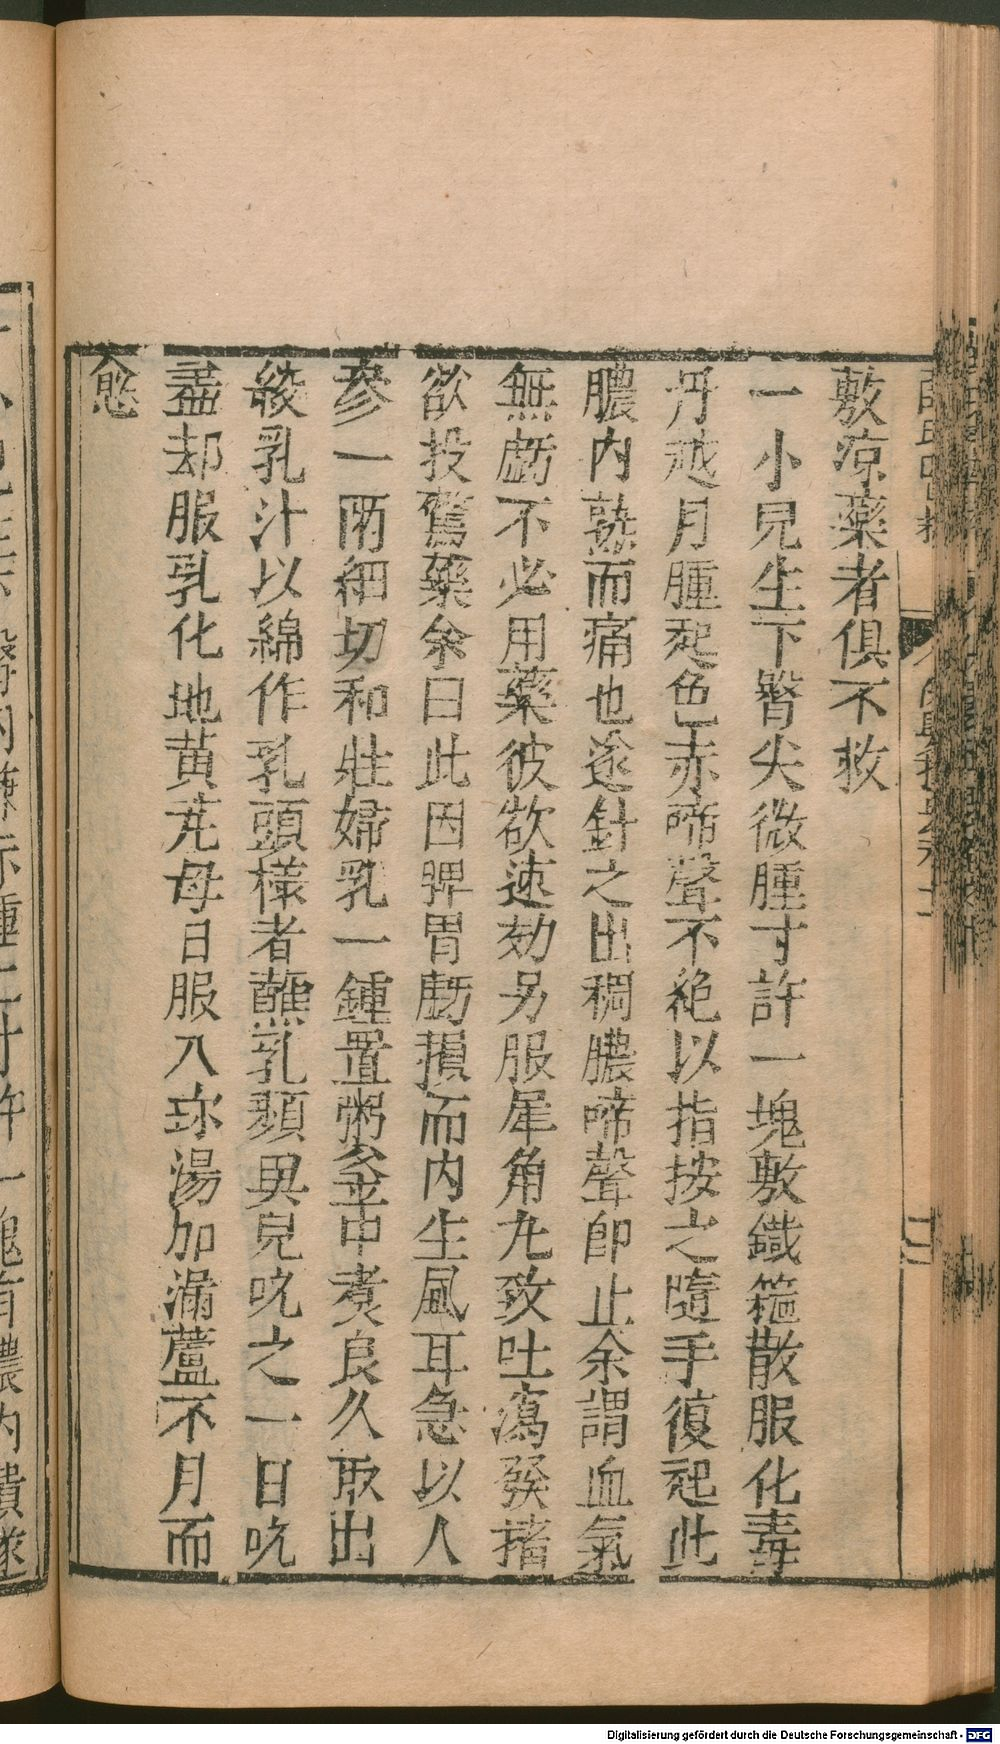 敷凉藥者俱不救
一小兒生下臀尖微腫寸許一塊敷鐡箍散服化毒
丹越月腫起色赤啼聲不絶以指按之隨手復起此
膿内熟而痛也遂針之出稠膿啼聲即止余謂血氣
無虧不必用藥彼欲速効另服犀角丸致吐瀉發搐
欲投驚藥余曰此因脾胃虧損而内生風耳急以人
參一兩細切和壯婦乳一鍾置粥釜中煮良久取出
絞乳汁以綿作乳頭様者蘸乳頻與兒吮之一日吮
盡却服乳化地黄芪母日服八珍湯加漏蘆不月而
愈
Digitalisierung gefördert durch die Deutsche Forschungsgemeinschaft - DFG